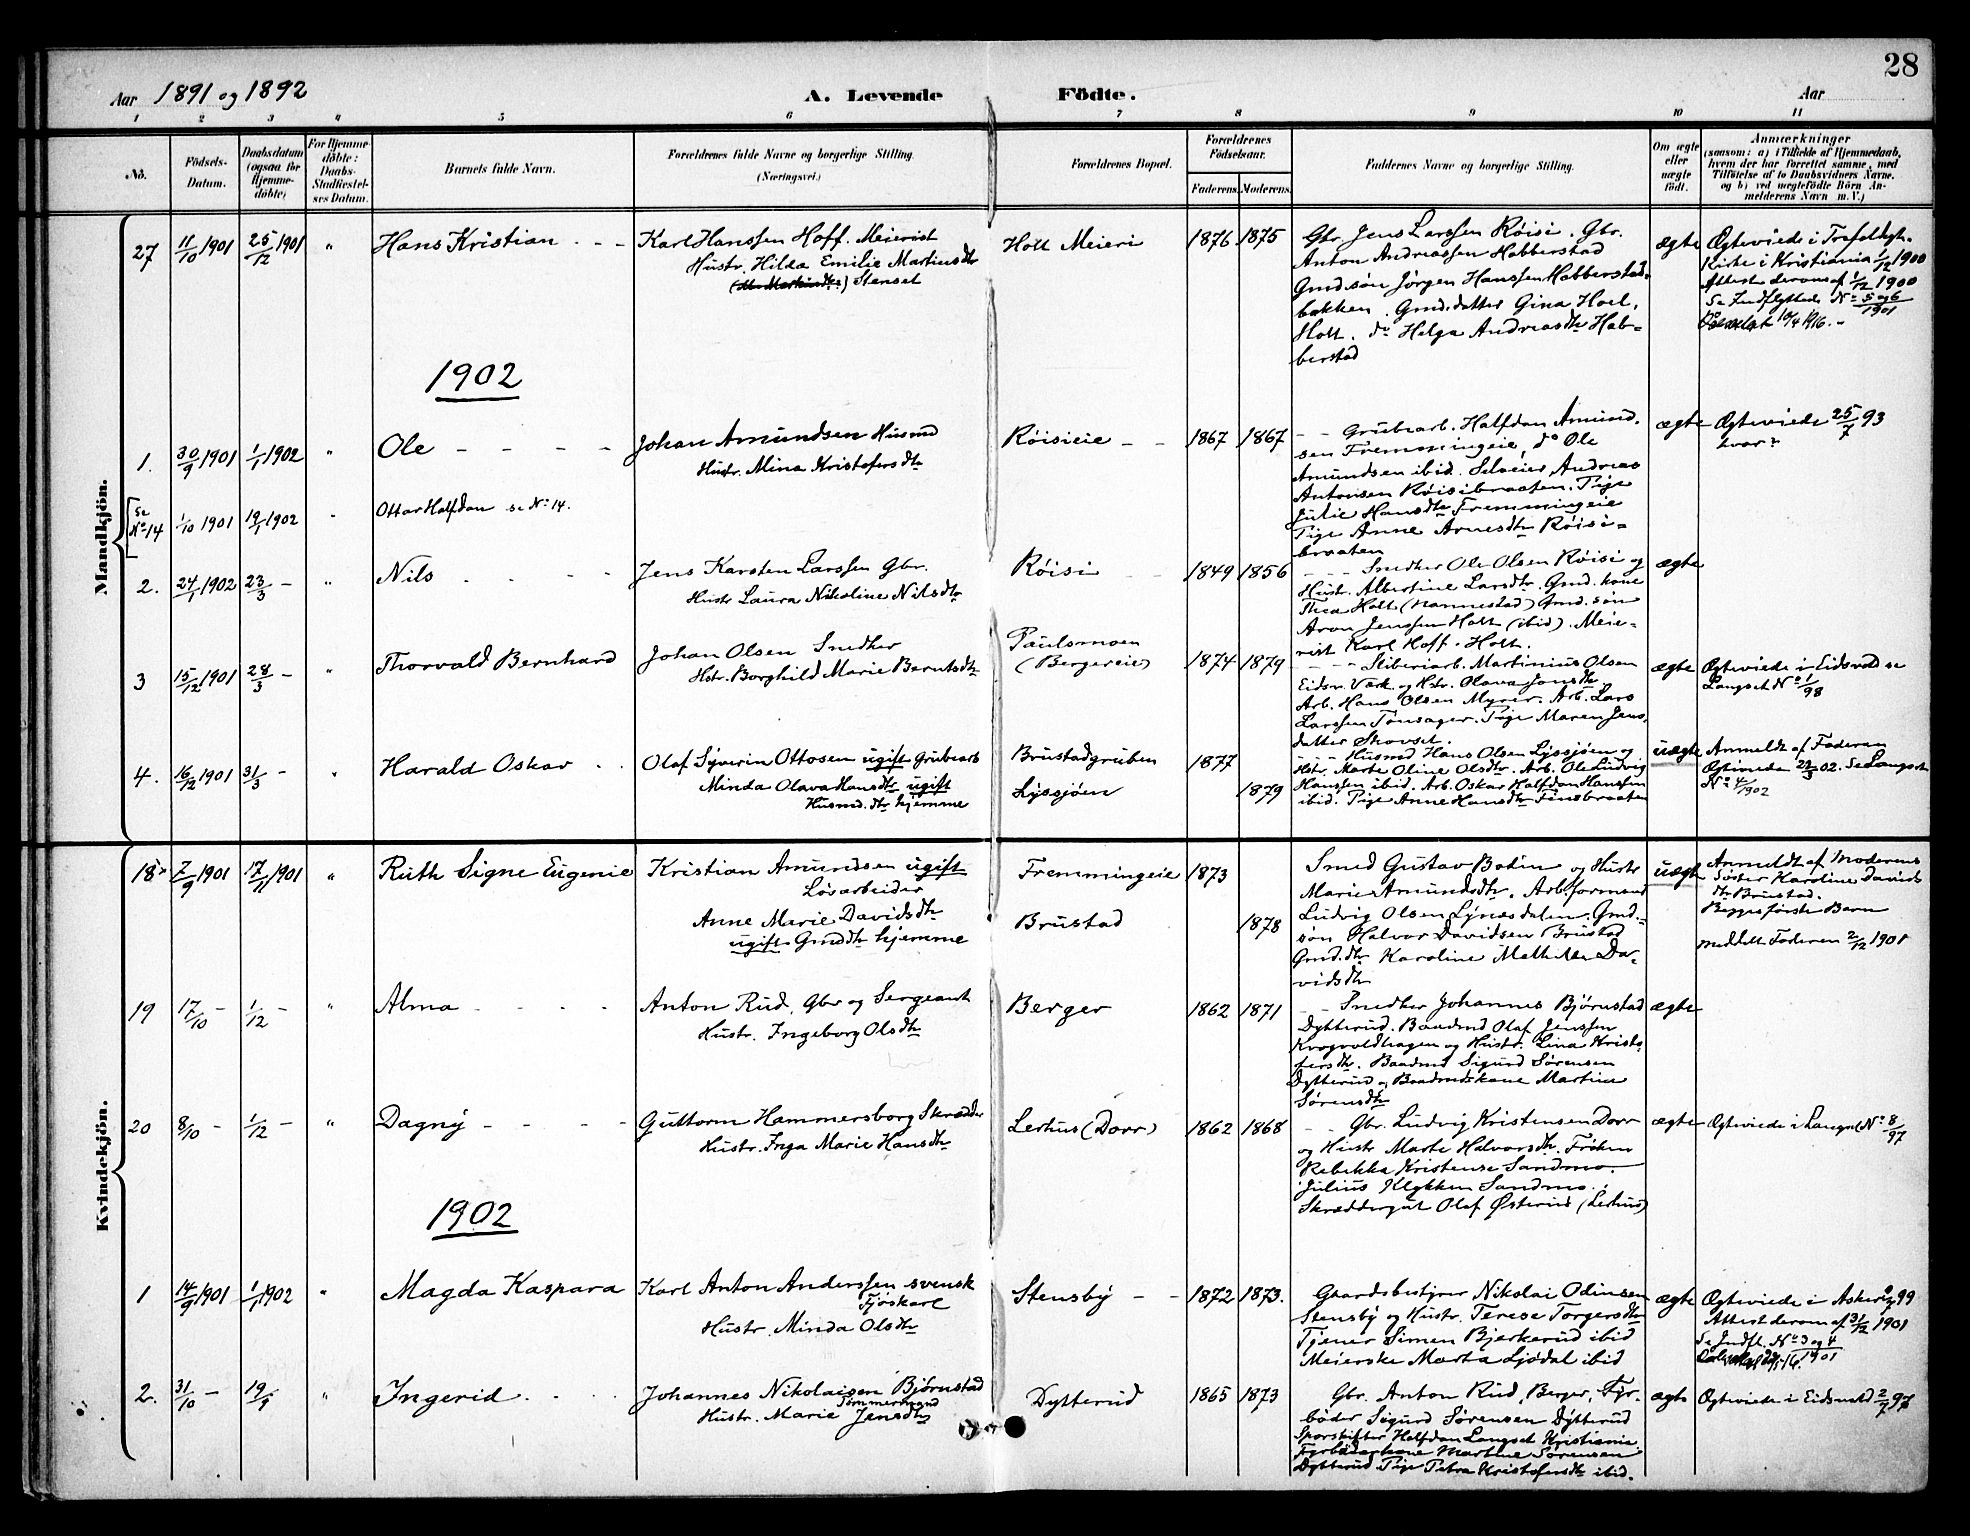 28
Aar 1891 og 1892
A. Levende Födte.
Aar
1 2 3 4 5 6 7 8 9 10 11
No.
Födsels-Datum.
Daabsdatum (ogsaa for Hjemme-döbte)
For Hjemme-döbte: Daabs-Stadfæstel-ses Datum.
Barnets fulde Navn.
Forældrenes fulde Navne og borgerlige Stilling.
(Næringsvei.)
Forældrenes Bopæl.
Forældrenes Födselsaar.
Faderens. Moderens.
Faddernes Navne og borgerlige Stilling.
Om ægte eller uægte födt.
Anmærkninger
(saasom: a) i Tilfælde af Hjemmedaab,
hvem der har forrettet samme, med
Tilföielse af to Daabsvidners Navne,
og b) ved uægtefödte Börn An-
melderens Navn m. V.)
Mandkjön.
27 11/10 1901 25/12 1901 " Hans Kristian
Karl Hanssen Hoff. Meierist
Hustr. Hilda Emilie Martinsdtr
Stenset
Holt Meieri 1876 1875
Gbr. Jens Larssen Röisi. Gbr.
Anton Andreassen Habberstad
Gmd.søn Jörgen Hanssen Habberstad-
bakken. Gmd.datter Gina Hoel,
Holt. do Helga Andreasdtr Hab-
berstad
ægte
Ægteviede i Trefoldigh.
Kirke i Kristiania 1/12 1900
Attest derom af 1/12 1900
Se Indflyttede No 5 og 6/1901
1902
1. 30/9 1901 1/1 1902 " Ole
Johan Amundsen Husmd
Hustr. Mina Kristofersdtr
Röisieie 1867 1867
Grubearb. Halfdan Amund-
sen Fremmingeie, do Ole
Amundsen ibid. Selveier Andreas
Antonsen Röisibraaten. Pige
Julie Hansdtr Fremmingeie
Pige Anne Arnesdtr Röisi-
braaten
ægte
Ægteviede 25/7 93
hvor?
Se No 14 1/10 1901 19/1 1902 " Ottar Halfdan se No 14.
2. 24/1 1902 23/3 – " Nils
Jens Karsten Larssen Gbr.
Hustr Laura Nikoline Nilsdtr
Röisi 1849 1856
Snedker Ole Olsen Röisi og
Hustr. Albertine Larsdtr. Gmd.kone
Thea Holt (Nannestad) Gmd.søn
Aron Jenssen Holt (ibid). Meie-
rist Karl Hoff. Holt.
ægte
3 15/12 1901 28/3 – " Thorvald Bernhard
Johan Olsen Snedker
Hstr. Borghild Marie Berntsdtr
Paulsmoen
(Bergereie)
1874 1879
Stiberiarb. Martinius Olsen
Eidsv. Værk og Hstr. Olava Jonsdtr
Arb. Hans Olsen Myrer. Arb. Lars
Larssen Tönsager. Pige Maren Jens-
datter Skovset.
ægte
Ægteviede i Eidsvold se
Langset No 1/98
4. 16/12 1901 31/3 – " Harald Oskar
Olaf Syverin Ottosen ugift Grubearb
Minda Olava Hansdtr ugift
Husmd.dtr hjemme
Brustadgruben 1877
Lyssjöen 1879
Husmd Hans Olsen Lyssjöen og
Hstr. Marte Oline Olsdtr. Arb. Ole Ludvig
Hanssen ibid. Arb. Oskar Halfdan Hanssen
ibid. Pige Anne Hansdtr Finsbraaten
uægte
Anmeldt af Faderen
Ægteviede 23/3 02. Se Langset
No 4/1902
Kvindekjön.
18 7/9 1901 17/11 1901 " Ruth Signe Eugenie
Kristian Amundsen ugift
Løsarbeider
Anne Marie Davidsdtr
ugift Gmddtr hjemme
Fremmingeie 1873
Brustad 1878
Smed Gustav Bodin og Hustr
Marie Amundsdtr. Arb.formand
Ludvig Olsen Lynæsdalen. Gmd.-
søn Halvor Davidsen Brustad
Gmd.dtr Karoline Mathilde Da-
vidsdtr
uægte
Anmeldt af Moderens
Søster Karoline Davids
dtr Brustad.
Begges første Barn
Meddelt Faderen 2/12 1901
19 17/10 – 1/12 – " Alma
Anton Rud, Gbr og Sergeant
Hustr. Ingeborg Olsdtr
Berger 1862 1871
Snedker Johannes Björnstad
Dytterud. Baadmd Olaf Jenssen
Krogvoldhagen og Hustr. Lina Kristo-
fersdtr. Baadmd Sigurd Sörensen
Dytterud og Baadmdskone Martine
Sörensdtr
ægte
20 8/10 – 1/12 – " Dagny
Guttorm Hammersborg Skrædder
Hustr. Inga Marie Hansdtr
Lerhus (Dorr) 1862 1868
Gbr. Ludvig Kristensen Dorr
og Hustr Marte Halvorsdtr. Frøken
Rebekka Kristense Sandmo.
Julius Klykken Sandmo.
Skræddergut Olaf Østerud (Lerhus)
ægte
Ægteviede i Langset No 8/97
1902
1 14/9 1901 1/1 1902 " Magda Kaspara
Karl Anton Anderssen svensk
Fjöskarl
Hustr. Minda Olsdtr
Stensby 1872 1873.
Gaardsbestyrer Nikolai Odinsen
Stensby og Hustr. Terese Torgersdtr
Tjener Simen Bjerkerud ibid
Meierske Marta Ljødal ibid
ægte
Ægteviede i Asker 99
Attest derom af 31/12 1901
Se Indfl. No 3 og 4/1901
2. 31/10 – 19/1 " Ingerid
Johannes Nikolaisen Björnstad
Tömmermand
Hustr. Marie Jensdtr
Dytterud 1865 1873
Gbr. Anton Rud, Berger, Fyr-
böder Sigurd Sörensen Dytterud
Sporskifter Halfdan Langset Kristiania
Fyrböderkone Martine Sörensen
Dytterud Pige Petra Kristofersdtr ibid.
ægte
Ægteviede i Eidsvold 2/7 97